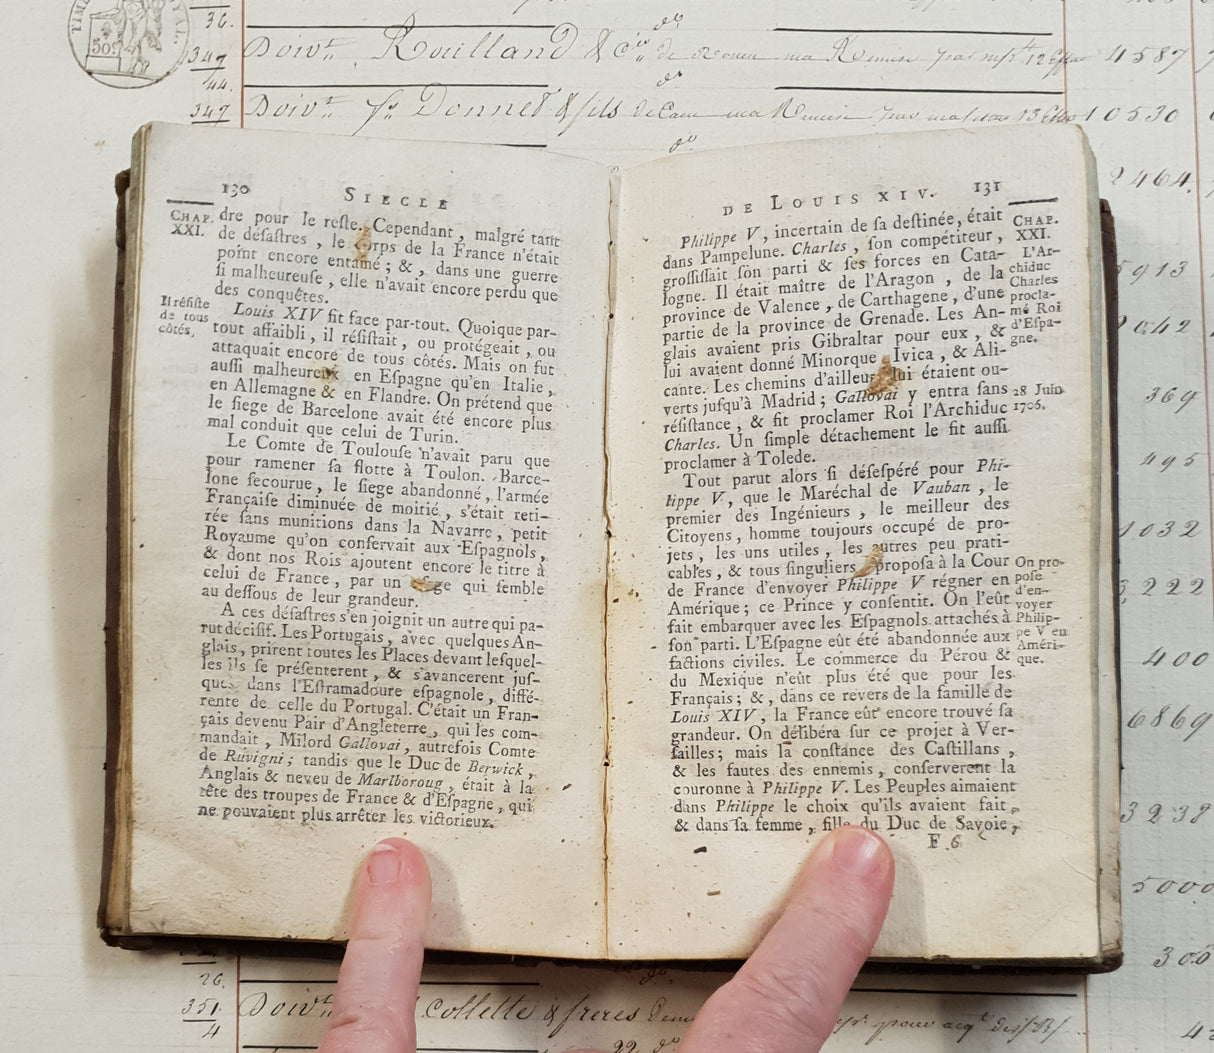 36.
347
44.
347
50c
Doivt. Rouilland & Cie de Rouen
4587
Doivt. fs. Donnet & fils de Caen
10530
2464.
5913
2042
369
495
1032
3222
400
6869
3238
5000
300
130
SIECLE
CHAP.
XXI.
dre pour le reste. Cependant, malgré tant
de désastres, le corps de la France n'était
point encore entamé; &, dans une guerre
si malheureuse, elle n'avait encore perdu que
des conquêtes.
Il résiste
de tous
côtés,
Louis XIV fit face par-tout. Quoique par-
tout affaibli, il résistait, ou protégeait, ou
attaquait encore de tous côtés. Mais on fut
aussi malheureux en Espagne qu'en Italie,
en Allemagne & en Flandre. On prétend que
le siege de Barcelone avait été encore plus
mal conduit que celui de Turin.
Le Comte de Toulouse n'avait paru que
pour ramener sa flotte à Toulon. Barce-
lone secourue, le siege abandonné, l'armée
Française diminuée de moitié, s'était reti-
rée sans munitions dans la Navarre, petit
Royaume qu'on conservait aux Espagnols,
& dont nos Rois ajoutent encore le titre à
celui de France, par un usage qui semble
au dessous de leur grandeur.
A ces désastres s'en joignit un autre qui pa-
rut décisif. Les Portugais, avec quelques An-
glais, prirent toutes les Places devant lesquel-
les ils se présenterent, & s'avancerent jus-
ques dans l'Estramadoure espagnole, diffé-
rente de celle du Portugal. C'était un Fran-
çais devenu Pair d'Angleterre, qui les com-
mandait, Milord Gallovai, autrefois Comte
de Ruvigni; tandis que le Duc de Berwick,
Anglais & neveu de Marlboroug, était à la
tête des troupes de France & d'Espagne, qui
ne pouvaient plus arrêter les victorieux.
DE LOUIS XIV.
131
CHAP.
XXI.
Philippe V, incertain de sa destinée, était
dans Pampelune. Charles, son compétiteur,
grossissait son parti & ses forces en Cata-
logne. Il était maître de l'Aragon, de la
province de Valence, de Carthagene, d'une
partie de la province de Grenade. Les An-
glais avaient pris Gibraltar pour eux, &
lui avaient donné Minorque, Ivica, & Ali-
cante. Les chemins d'ailleurs lui étaient ou-
verts jusqu'à Madrid; Gallovai y entra sans
résistance, & fit proclamer Roi l'Archiduc
Charles. Un simple détachement le fit aussi
proclamer à Tolede.
L'Ar-
chiduc
Charles
procla-
mé Roi
d'Espa-
gne.
28 Juin
1706.
Tout parut alors si désespéré pour Phi-
lippe V, que le Maréchal de Vauban, le
premier des Ingénieurs, le meilleur des
Citoyens, homme toujours occupé de pro-
jets, les uns utiles, les autres peu prati-
cables, & tous singuliers, proposa à la Cour
de France d'envoyer Philippe V régner en
Amérique; ce Prince y consentit. On l'eût
fait embarquer avec les Espagnols attachés à
son parti. L'Espagne eût été abandonnée aux
factions civiles. Le commerce du Pérou &
du Mexique n'eût plus été que pour les
Français; &, dans ce revers de la famille de
Louis XIV, la France eût encore trouvé sa
grandeur. On délibéra sur ce projet à Ver-
sailles; mais la constance des Castillans,
& les fautes des ennemis, conserverent la
couronne à Philippe V. Les Peuples aimaient
dans Philippe le choix qu'ils avaient fait,
& dans sa femme, fille du Duc de Savoie,
On pro-
pose
d'en-
voyer
Philip-
pe V en
Améri-
que.
F 6
26.
351
4
Doivt. Collette & freres
22